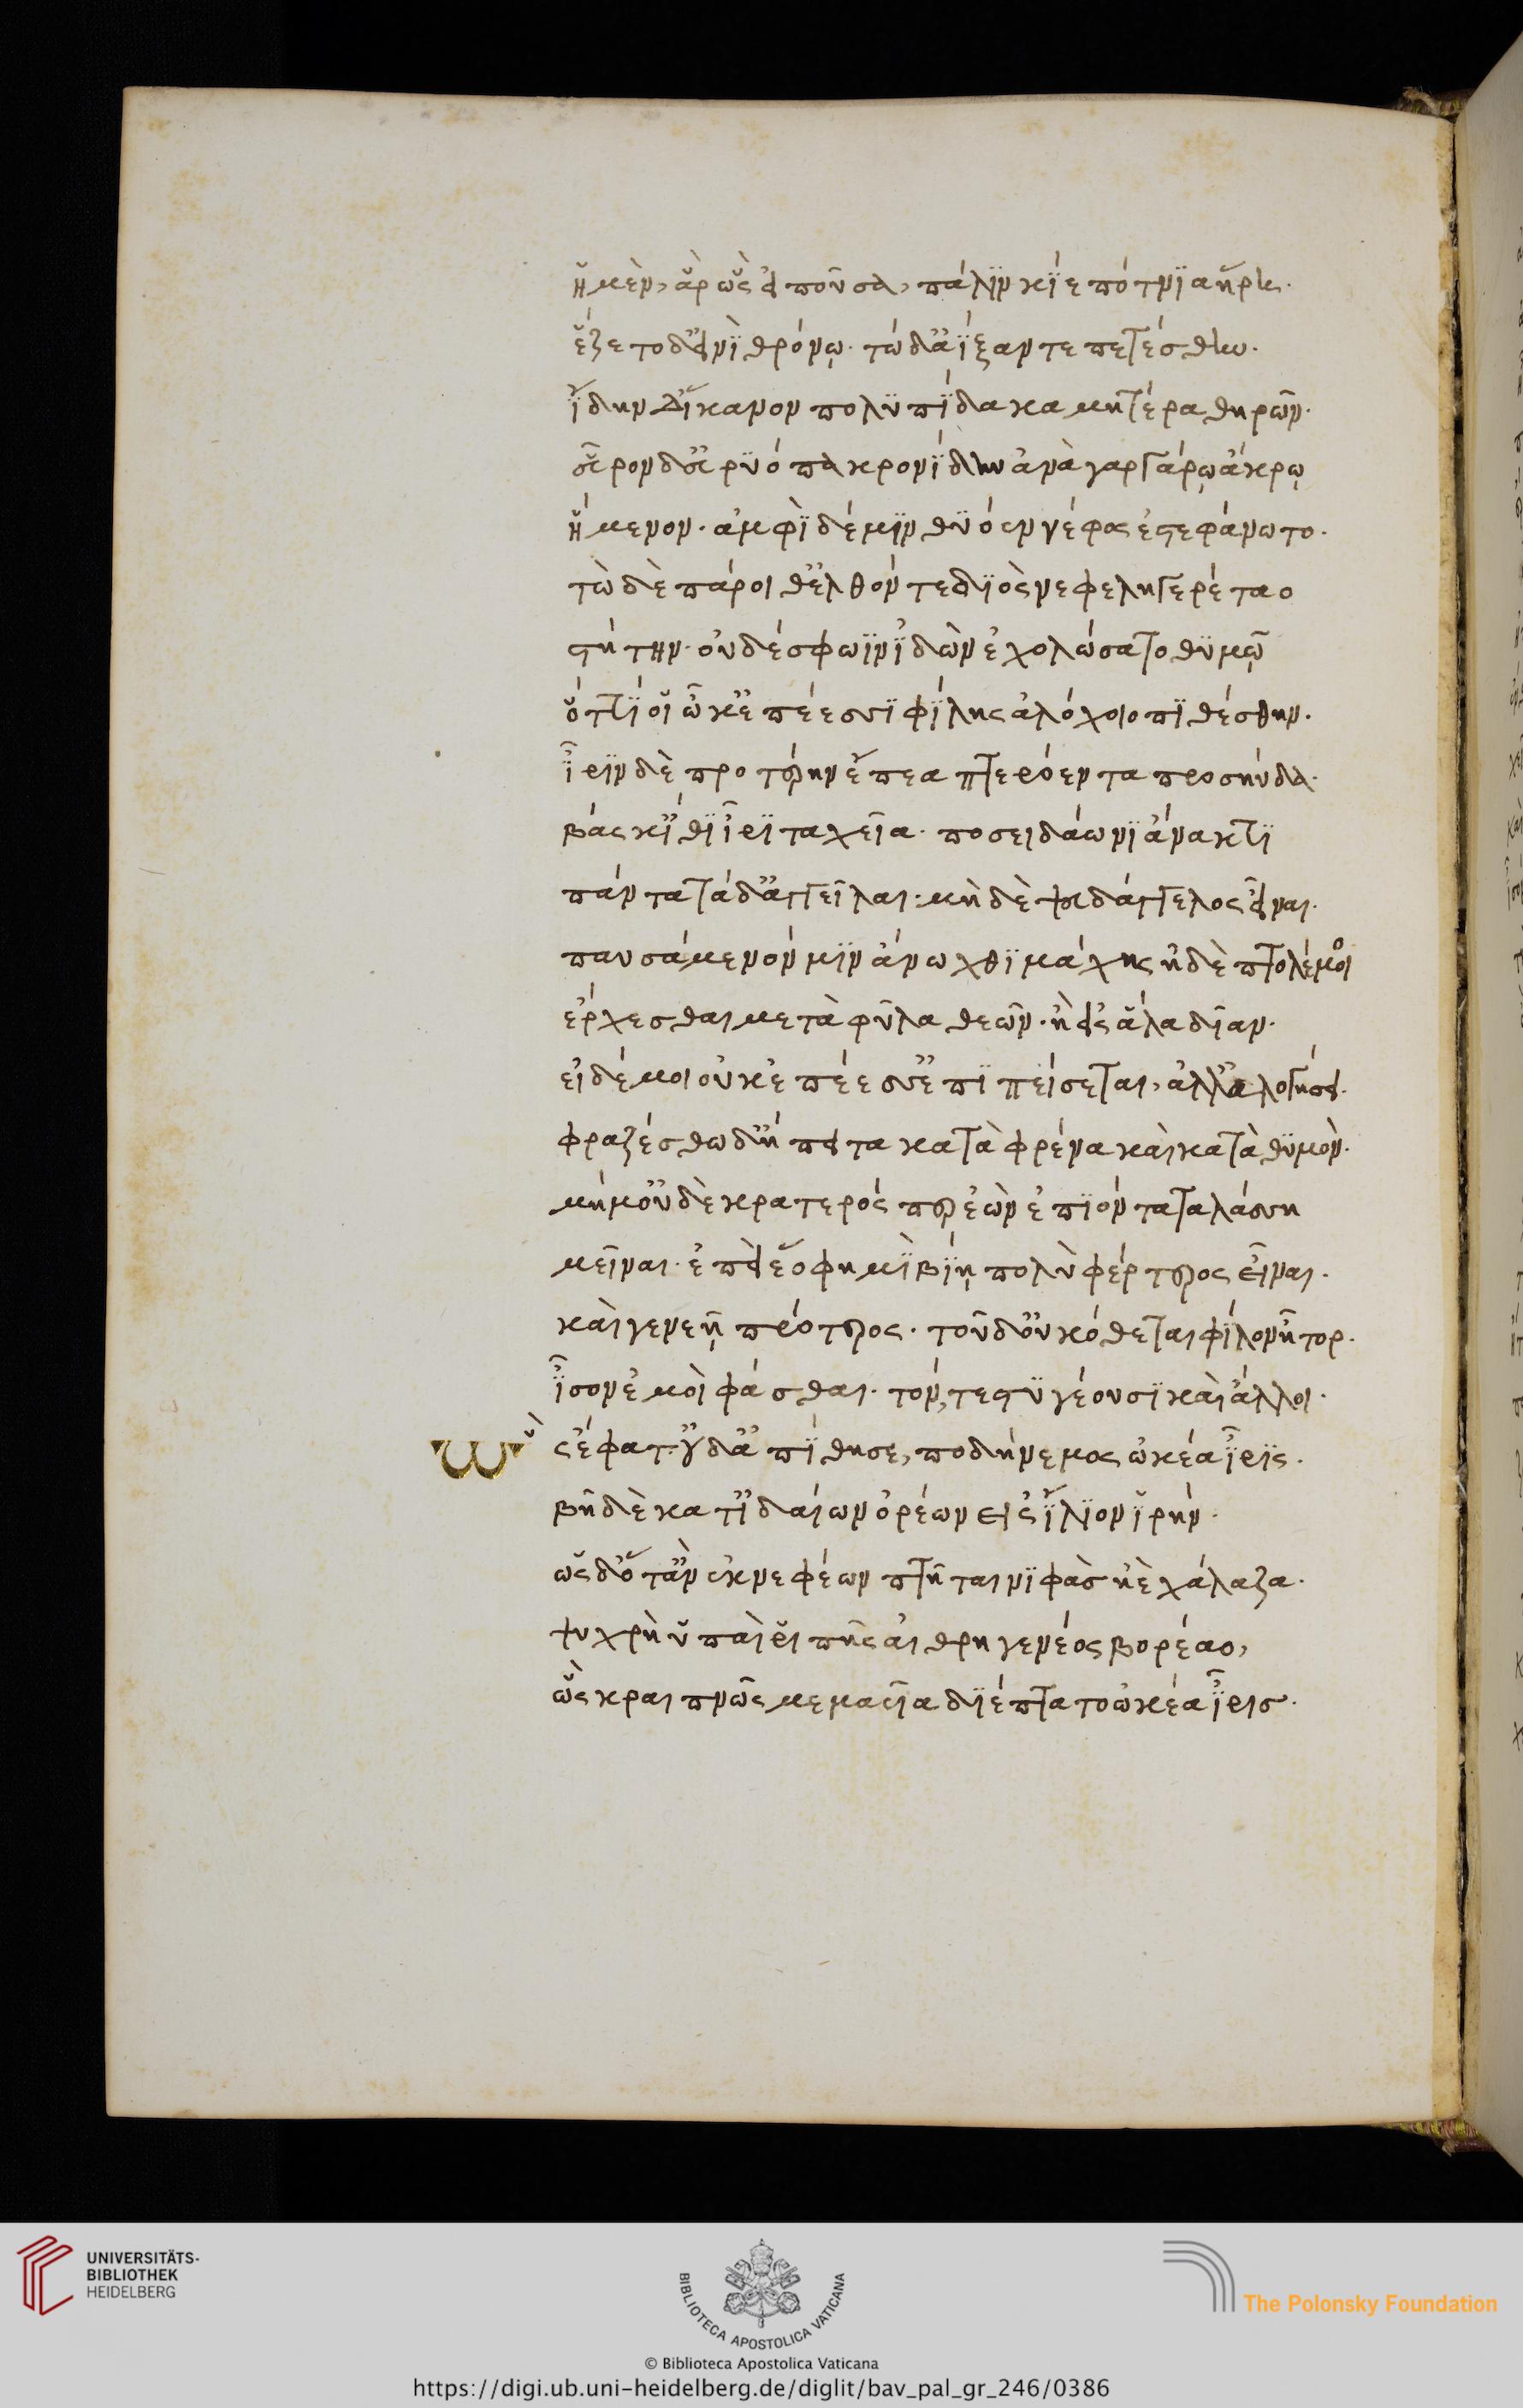 ἣ μὲν, ἄρ ὣς εἰποῦσα, πάλιν κίε πότνια ἥρη.
ἕζετο δ' εἰνὶ θρόνῳ. τὼ δ' ἀΐξαντε πετέσθην.
ἴδην δ' ἵκανον πολυπίδακα μητέρα θηρῶν.
εὗρον δ' εὐρύοπα κρονίδην ἀνὰ γαργάρῳ ἄκρῳ
ἥμενον. ἀμφὶ δέ μιν θυόεν νέφος ἐστεφάνωτο.
τὼ δὲ πάροιθ' ἐλθόντε διὸς νεφεληγερέταο
στήτην. οὐδέ σφωϊν ἰδὼν ἐχολώσατο θυμῷ
ὅττί οἱ ὦκ' ἐπέεσσι φίλης ἀλόχοιο πιθέσθην.
ἶριν δὲ προτέρην ἔπεα πτερόεντα προσηύδα.
βάσκ' ἴθι ἶρι ταχεῖα. ποσειδάωνι ἄνακτι
πάντα τάδ' ἀγγεῖλαι. μὴ δὲ ψευδάγγελος εἶναι.
παυσάμενόν μιν ἄνωχθι μάχης ἠδὲ πτολέμοιο
ἔρχεσθαι μετὰ φῦλα θεῶν. ἢ εἰς ἅλα δῖαν.
εἰ δέ μοι οὐκ ἐπέεσσ' ἐπιπείσεται, ἀλλ' ἀλογήσει.
φραζέσθω δ' ἤπειτα κατὰ φρένα καὶ κατὰ θυμὸν.
μή μ' οὐδὲ κρατερός περ ἐὼν ἐπιόντα ταλάσση
μεῖναι. ἐπεὶ ἕο φημὶ βίῃ πολὺ φέρτερος εἶναι.
καὶ γενεῇ πρότερος. τοῦ δ' οὐκ ὄθεται φίλον ἦτορ.
ἶσον ἐμοὶ φάσθαι. τόν, τε στυγέουσι καὶ ἄλλοι.
Ὣς ἔφατ'. οὐδ' ἀπίθησε, ποδήνεμος ὠκέα ἶρις.
βῆ δὲ κατ' ἰδαίων ὀρέων εἰς ἴλιον ἱρήν.
ὡς δ' ὅτ' ἂν ἐκ νεφέων πτῆται νιφὰς ἠὲ χάλαζα.
ψυχρὴ ὑπαὶ ῥιπῆς αἰθρηγενέος βορέαο,
ὣς κραιπνῶς μεμαεῖα διέπτατο ὠκέα ἶρις.
UNIVERSITÄTS-
BIBLIOTHEK
HEIDELBERG
BIBLIOTECA APOSTOLICA VATICANA
The Polonsky Foundation
© Biblioteca Apostolica Vaticana
https://digi.ub.uni-heidelberg.de/diglit/bav_pal_gr_246/0386